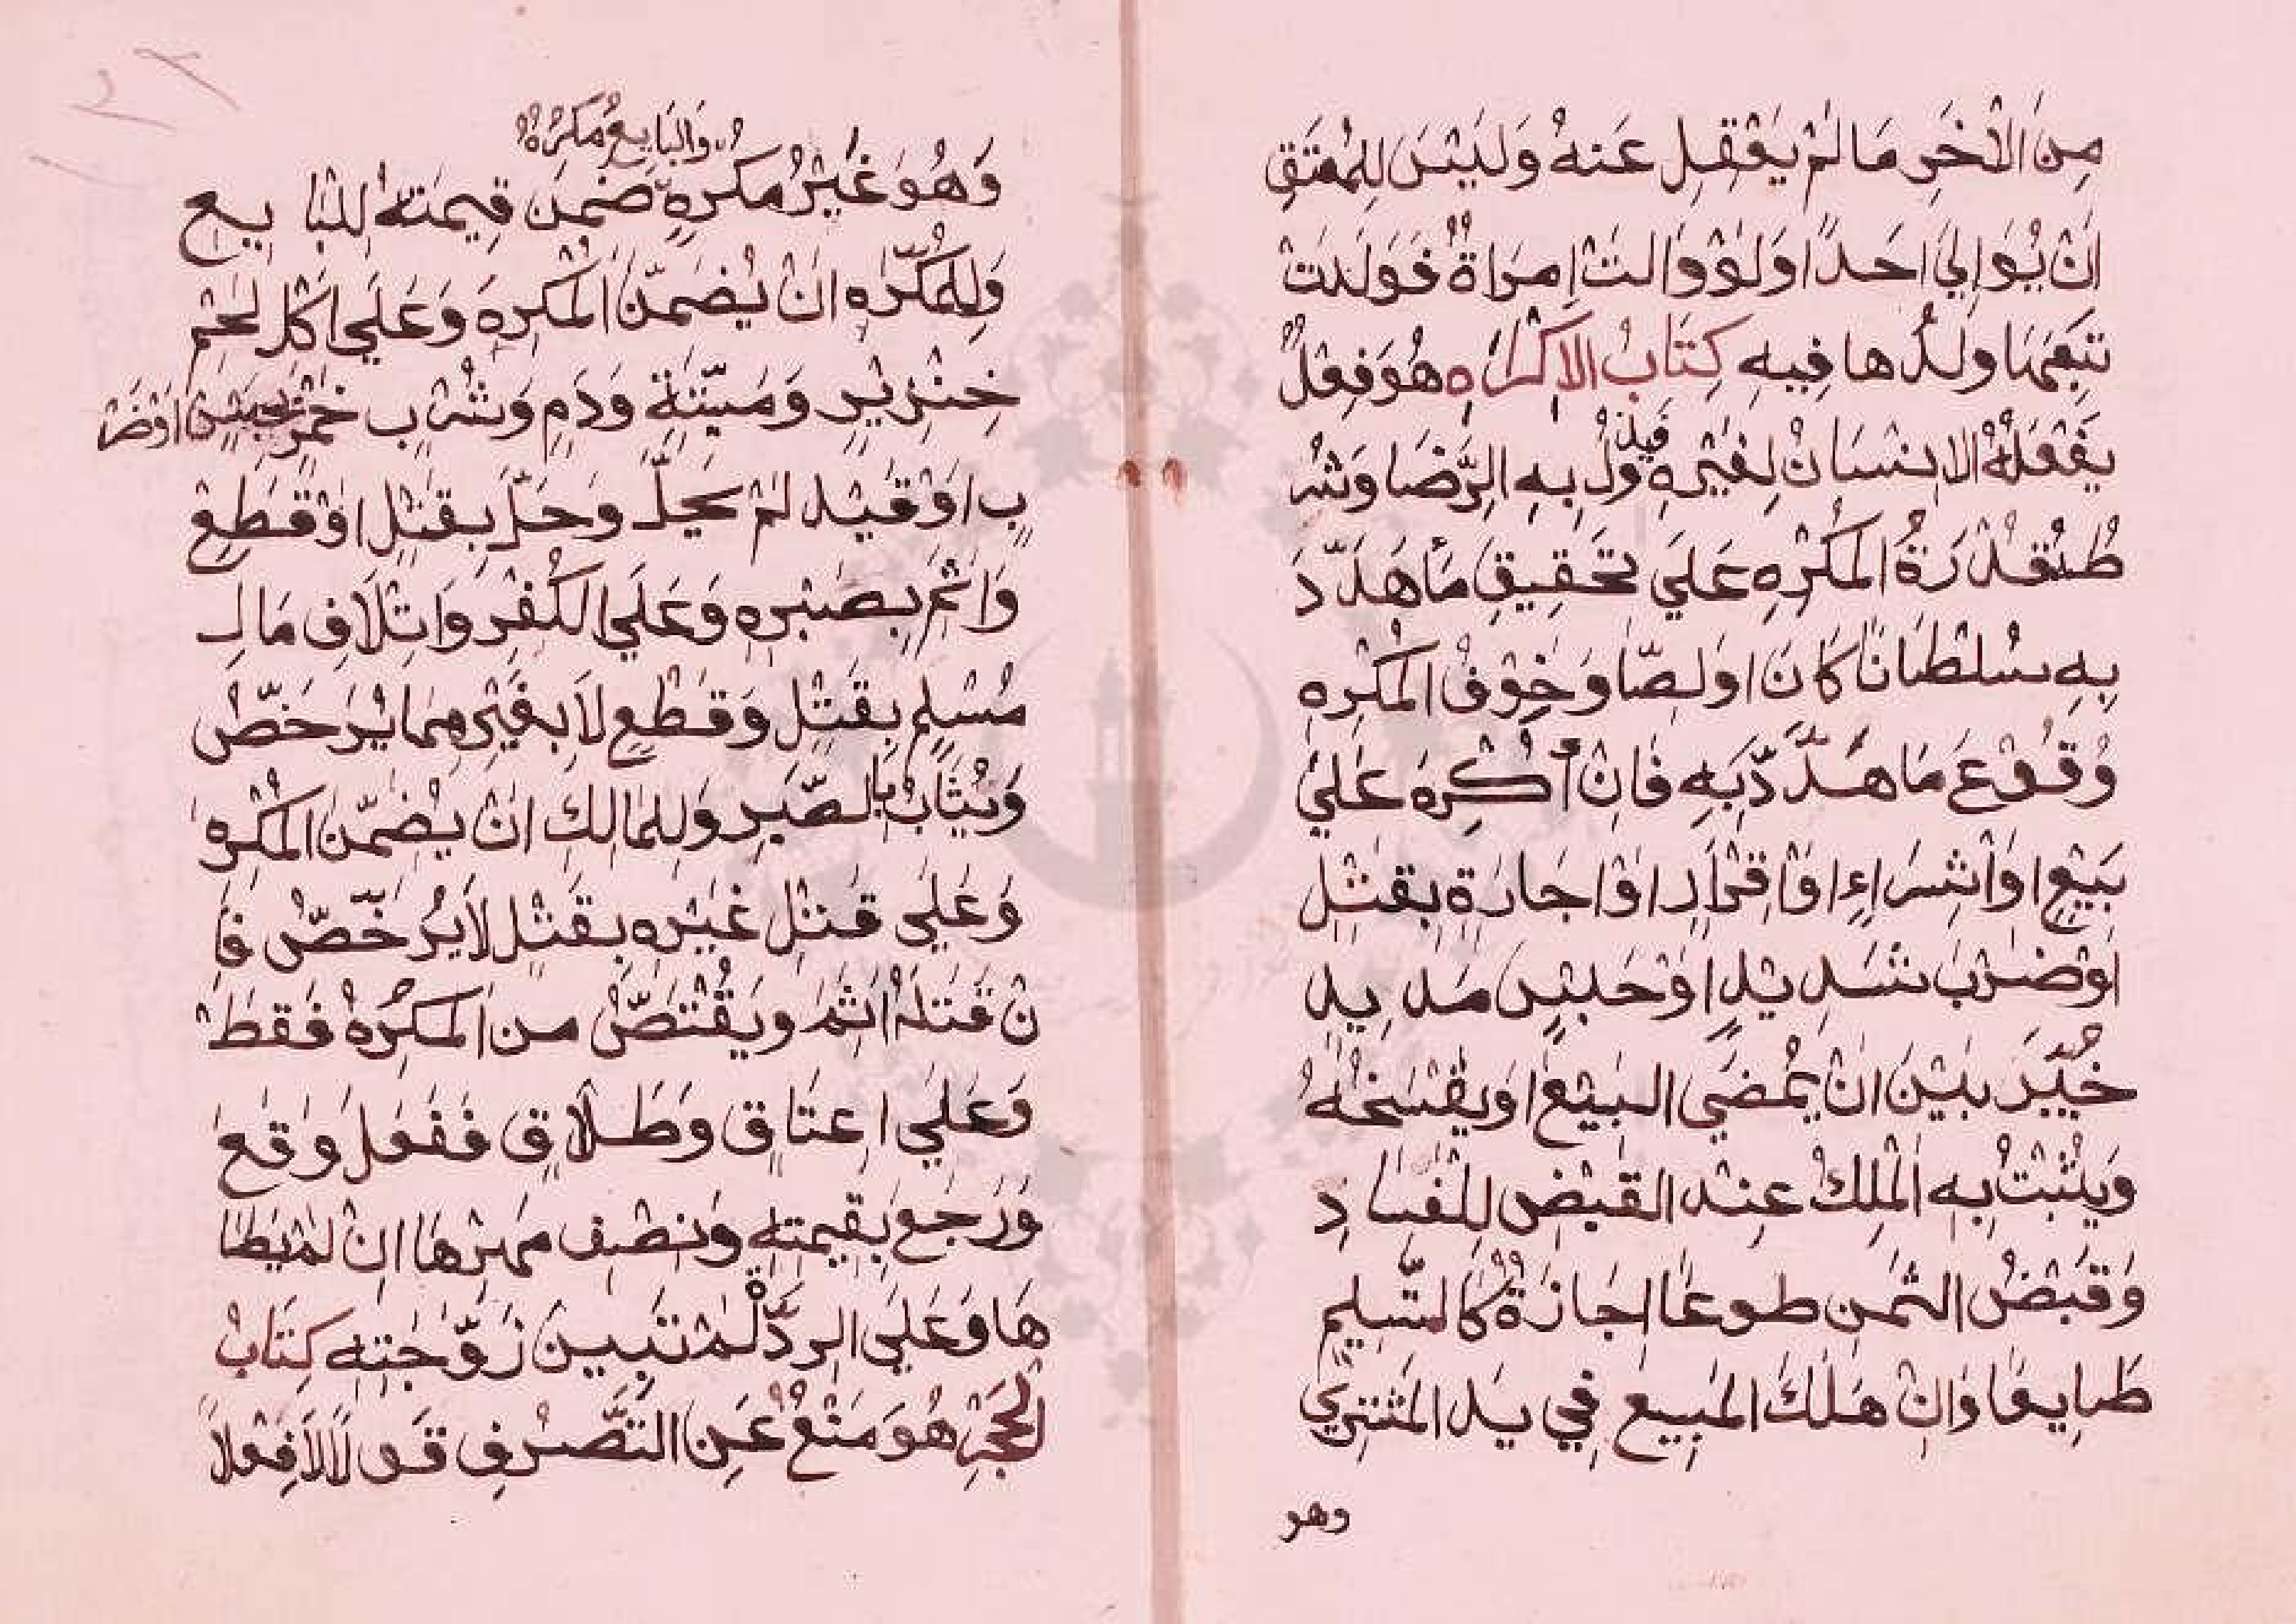 مِنَ الْاٰخَرِ مَا لَمْ يَعْقِلْ عَنهُ وَلَيْسَ لِلْمُعْتَقِ
اَنْ يُوَالِيَ اَحَدًا وَلَوْ وَالَتْ اِمرَاةٌ فَوَلَدَتْ
تَبِعَهَا ولَدُها فِيهِ كِتَابُ الاِكْرَاهِ هُوَ فِعْلٌ
يَفْعَلُهُ الاِنْسَانُ لِغَيْرِهِ فَيَزُولُ بِهِ الرِّضَا وَشَرْ
طُهُ قُدْرَةُ الْمُكْرِهِ عَلَي تَحْقِيقِ مَا هَدَّدَ
بِهِ سُلْطَانًا كَانَ اَوْ لِصًّا وَخَوْفُ الْمُكْرَهِ
وُقُوْعَ مَا هَدَّدَ بِهِ فَاِنْ اُكْرِهَ عَلَيَ
بَيْعٍ اَوْ شِرَاءٍ اَوْ اِقْرَارٍ اَوْ اِجَارَةٍ بِقَتْلٍ
اَوْ ضَرْبٍ شَدِيْدٍ اَوْ حَبْسٍ مَدِيدٍ
خُيِّرَ بَيْنَ اَنْ يُمْضِيَ الْبَيْعَ اَوْ يَفْسَخَهُ
وَيَثْبُتُ بِهِ الْمِلكُ عِنْدَ القَبْضِ لِلْفَسَادِ
وَقَبْضُ الثَّمَنِ طوعًا اِجَازَةٌ كَالتَّسْلِيمِ
طَايِعًا وَاِنْ هَلَكَ الْمَبِيعُ فِي يَدِ الْمُشْتَرِي
وهو
وَالْبَايِعُ مُكْرَهٌ
وَهُوَ غَيْرُ مُكْرَهٍ ضَمِنَ قِيمَتَهُ لِلْبَايِعِ
وَلِلْمُكْرَهِ اَنْ يُضَمِّنَ الْمُكْرِهَ وَعَلَي اَكْلِ لَحْمِ
خِنْزِيْرٍ وَمَيْتَةٍ وَدَمٍ وَشُرْبِ خَمْرٍ بِحَبْسٍ اَوْ ضَرْ
بٍ اَوْ قَيْدٍ لَمْ يَحِلَّ وَحَلَّ بِقَتْلٍ اَوْ قَطْعٍ
وَاَثِمَ بِصَبْرِهِ وَعَلَي الْكُفْرِ وَاِتْلَافِ مَالِ
مُسْلِمٍ بِقَتْلٍ وَقَطْعٍ لَا بِغَيْرِهِمَا يُرَخَّصُ
وَيُثَابُ بِالصَّبْرِ وَلِلْمَالِكِ اَنْ يُضَمِّنَ الْمُكْرِهَ
وَعَلَي قَتْلِ غَيْرِهِ بِقَتْلٍ لَا يُرَخَّصُ فَاِ
نْ قَتَلَهُ اَثِمَ وَيُقْتَصُّ مِنَ الْمُكْرِهِ فَقَطْ
وَعَلَي اِعتَاقٍ وَطَلَاقٍ فَفَعَلَ وَقَعَ
وَرَجَعَ بِقِيمَتِهِ وَنِصْفِ مَهْرِهَا اِنْ لَمْ يَطَا
هَا وَعَلَي الرِّدَّةِ لَمْ تَبِينْ زَوْجَتُهُ كِتَابُ
الْحَجْرِ هُوَ مَنْعٌ عَنِ التَّصَرُّفِ قَولًا لَا فِعْلًا